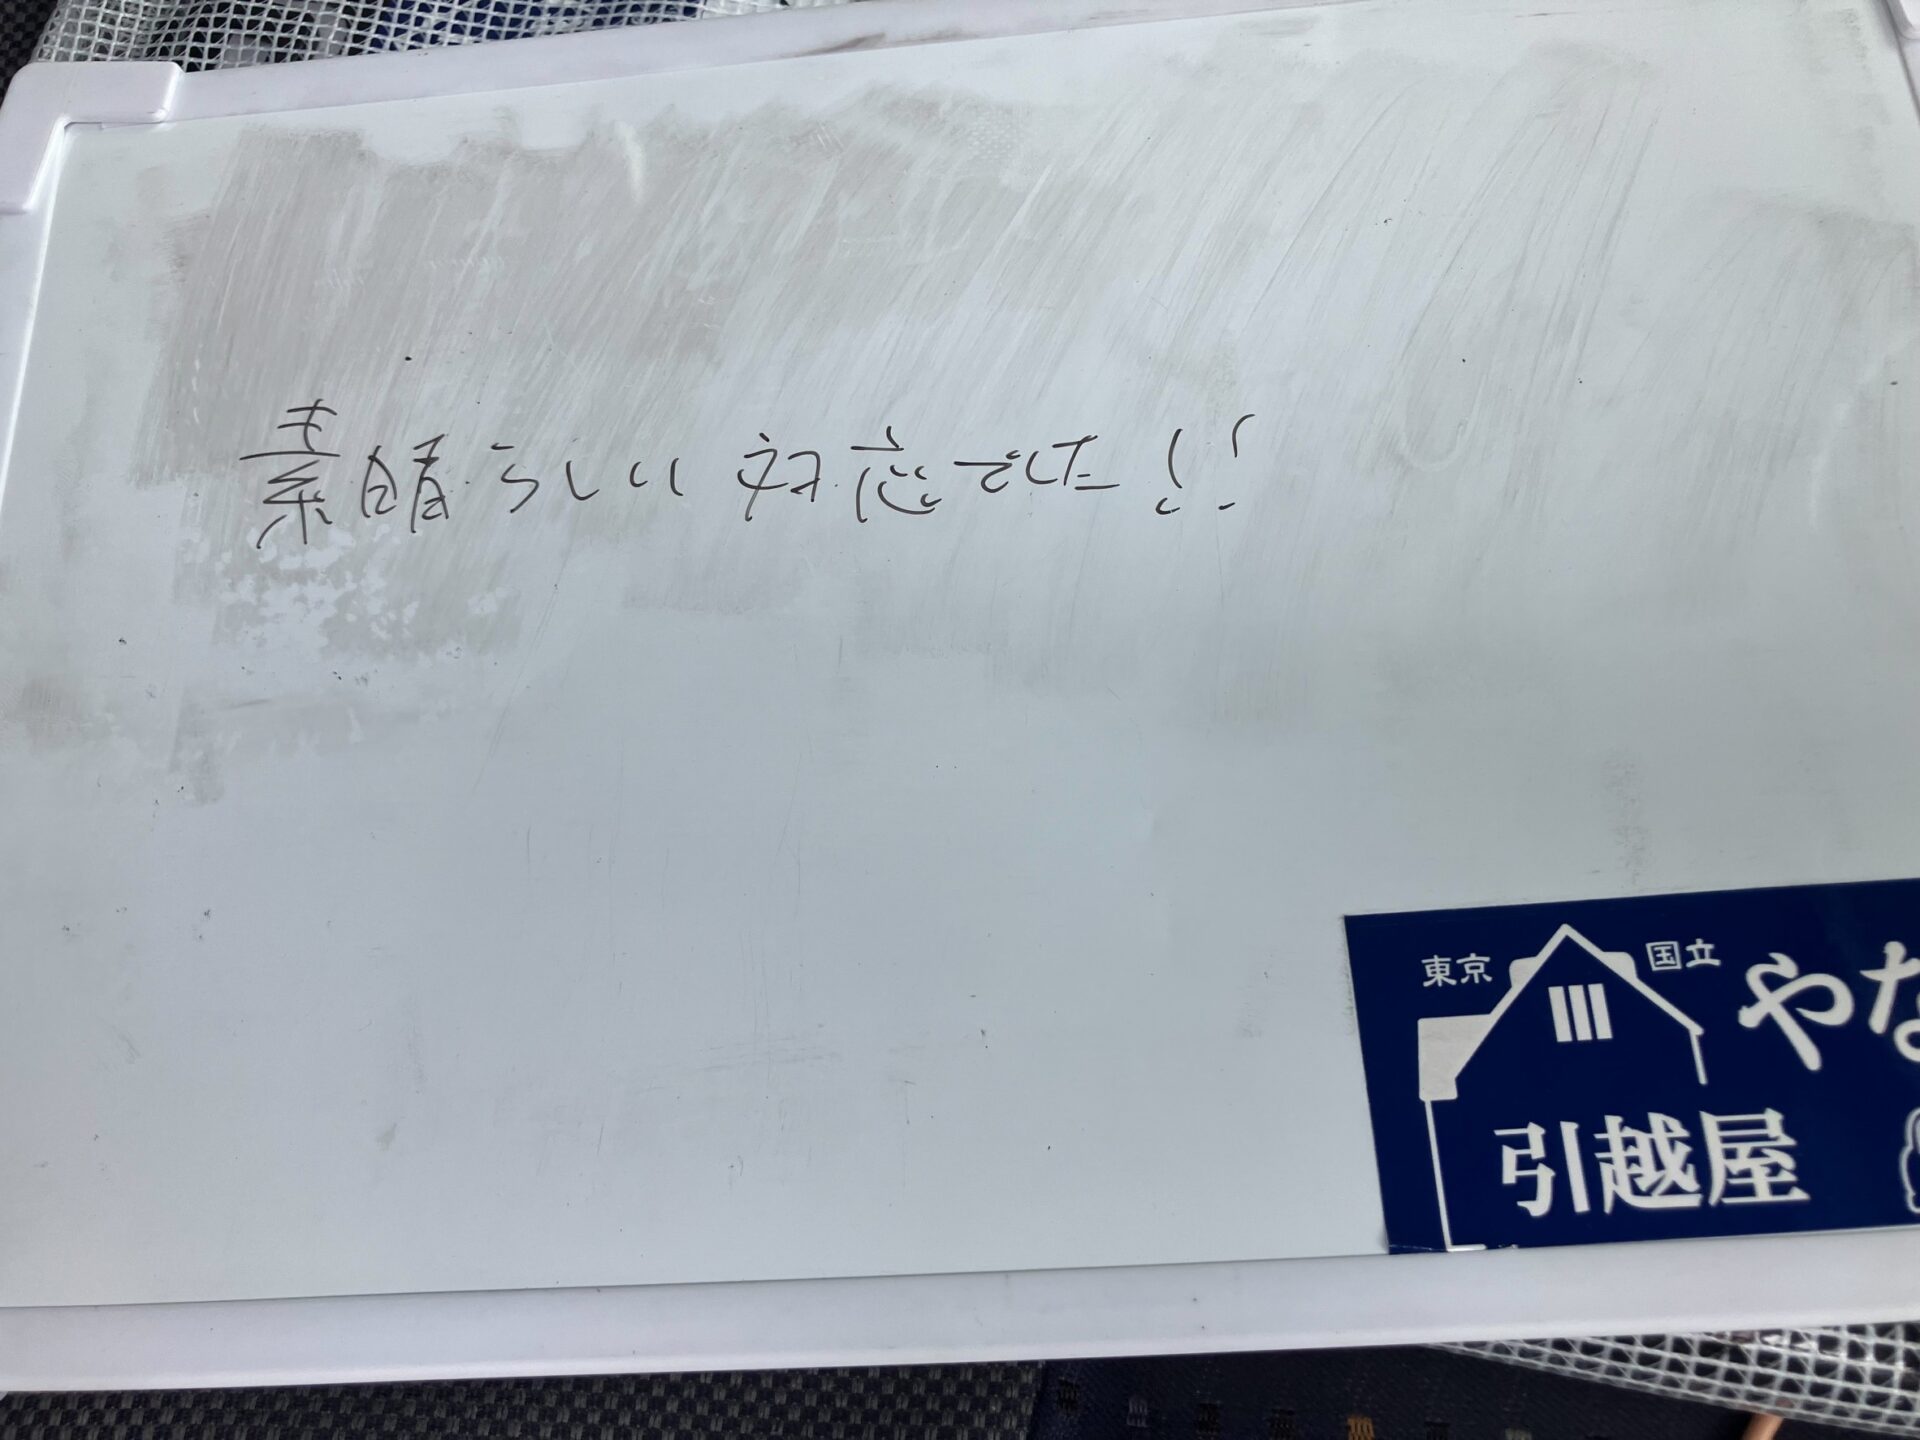 素晴らしい対応でした!!
東京 国立 やな
引越屋